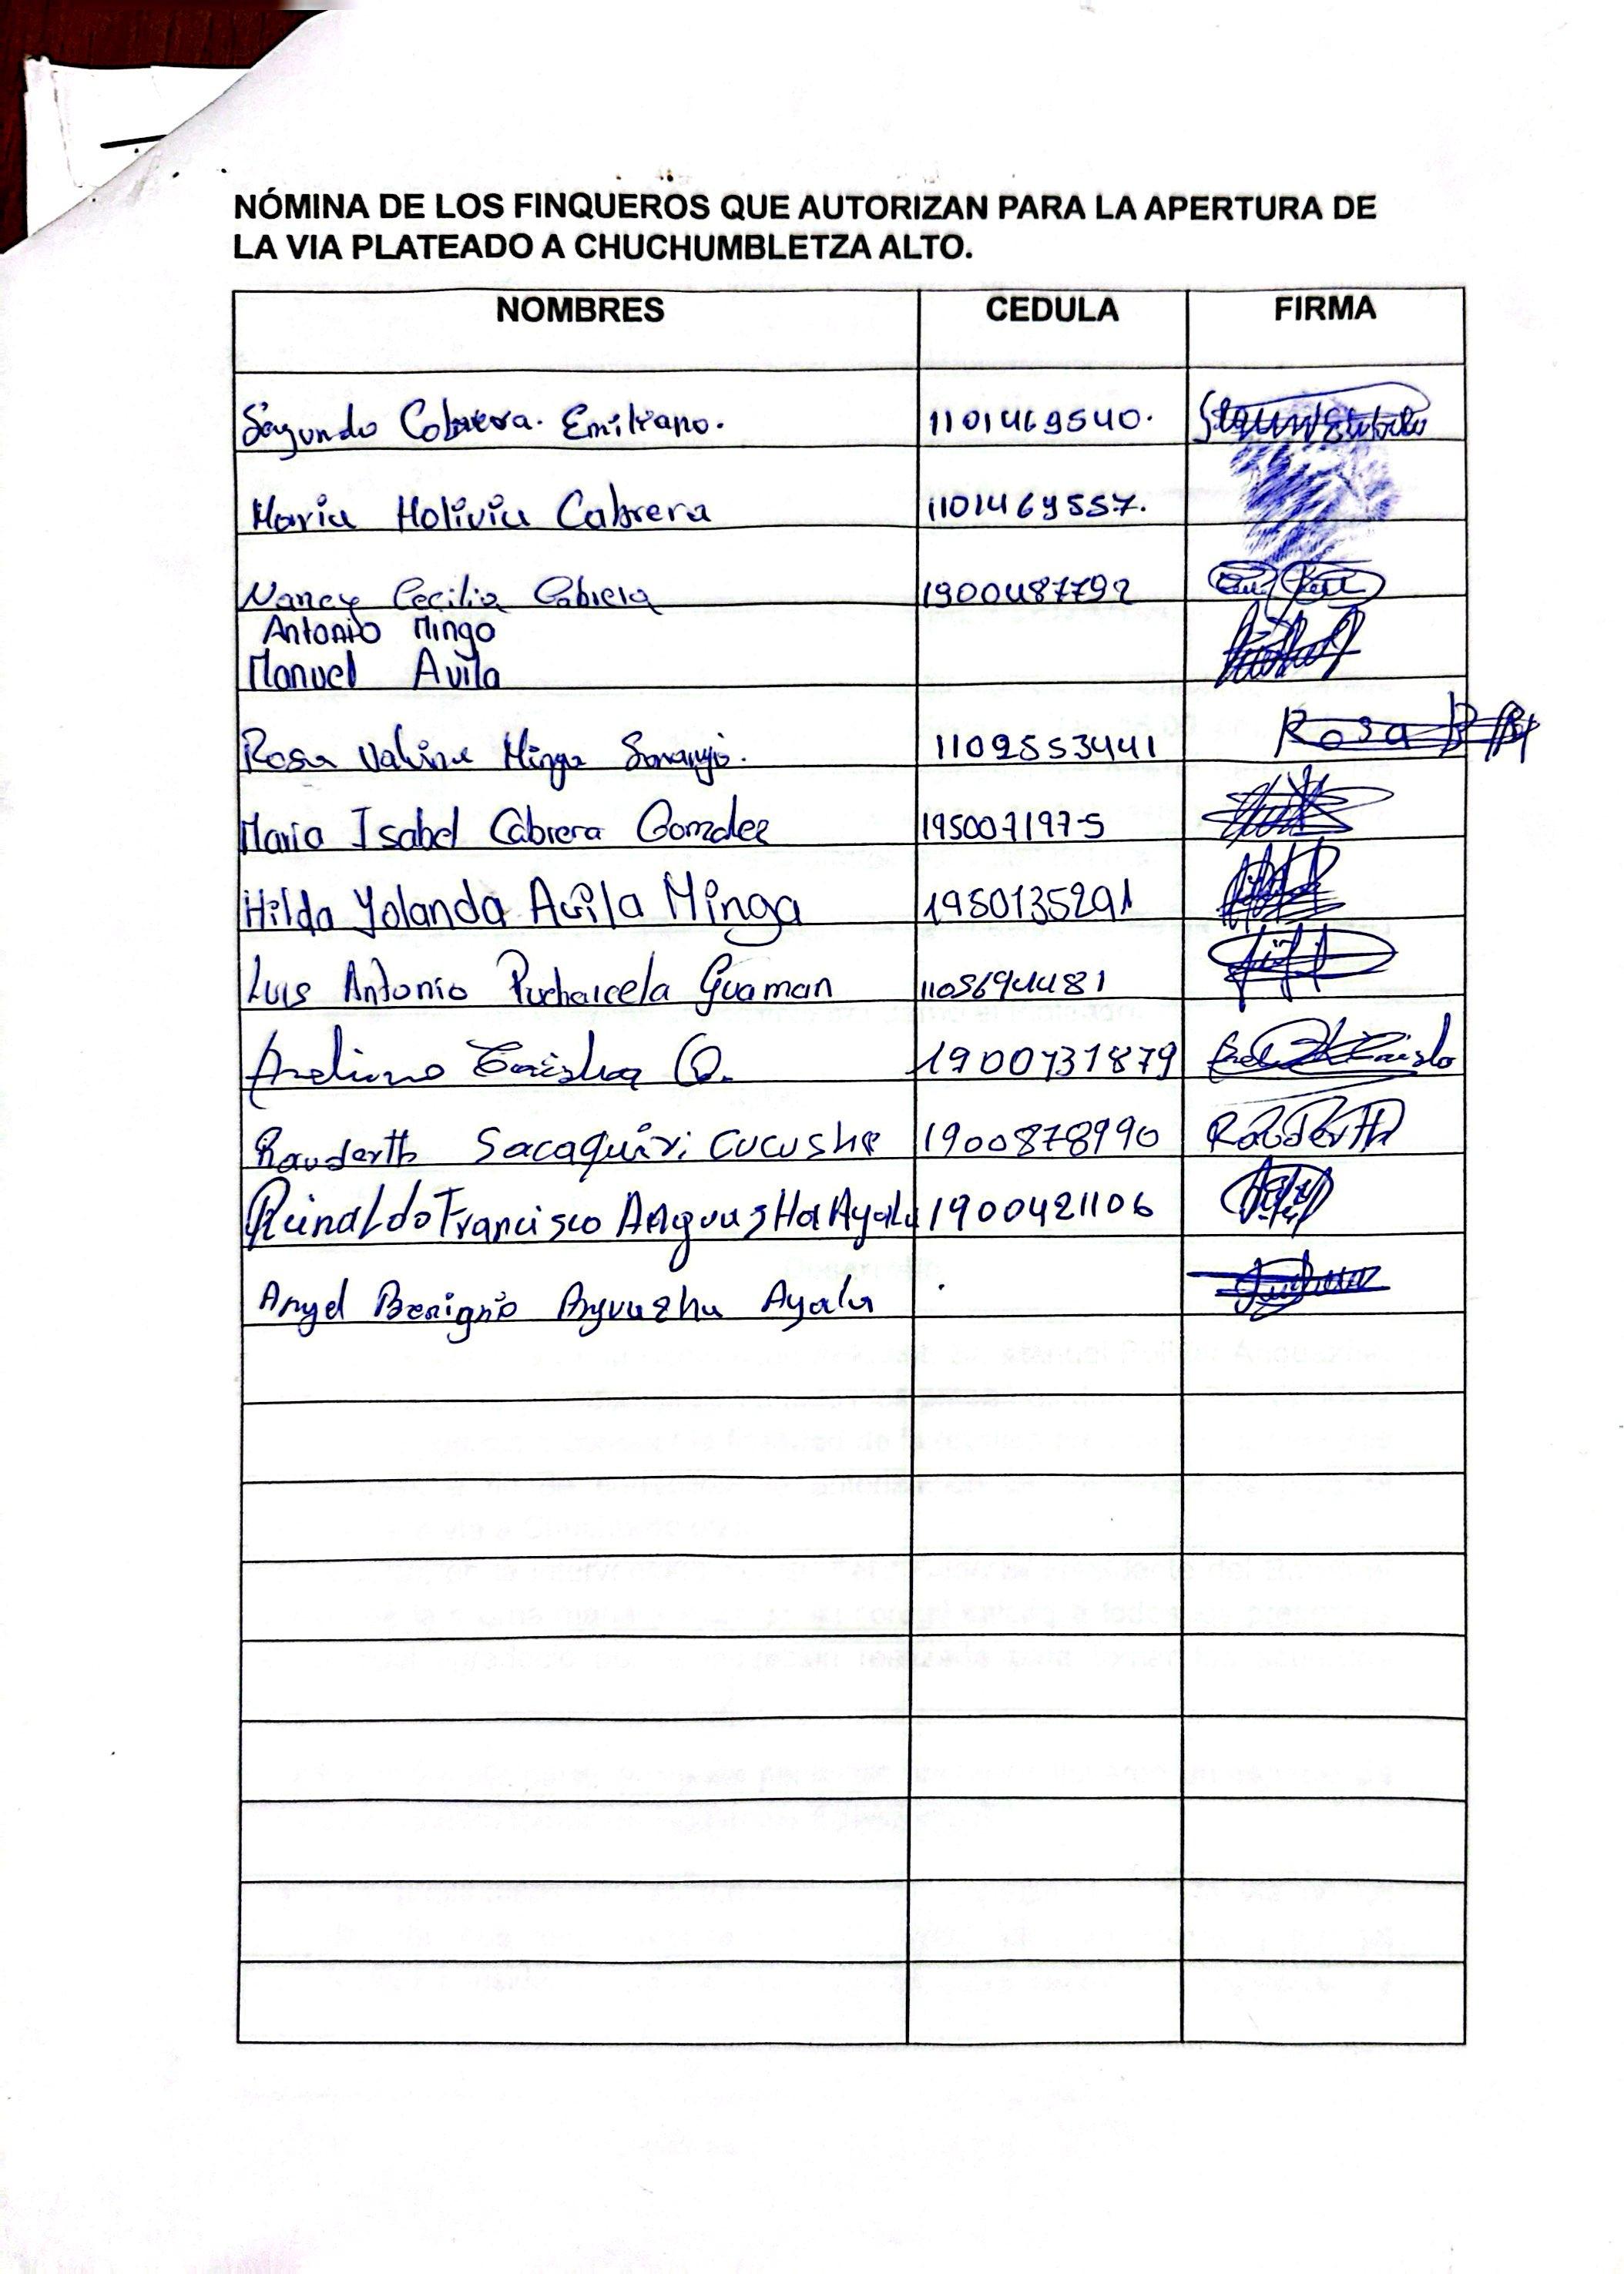 NÓMINA DE LOS FINQUEROS QUE AUTORIZAN PARA LA APERTURA DE
LA VIA PLATEADO A CHUCHUMBLETZA ALTO.
NOMBRES CEDULA FIRMA
Segundo Cabrera. Emiliano. 1101469540.
Maria Holivia Cabrera 1101469557.
Nancy Cecilia Cabrera 1900487792
Antonio Mingo
Manuel Avila
Rosa Minga 1102553441 Rosa
Maria Isabel Cabrera Gonzalez 1950071975
Hilda Yolanda Avila Minga 1950135291
Luis Antonio Puchaicela Guaman 1105694481
1900731879
Rauderth Sacaquiri Cucushe 1900878990 Rauderth
Reinaldo Francisco Anguasha Ayala 1900421106
Angel Benigno Ayala